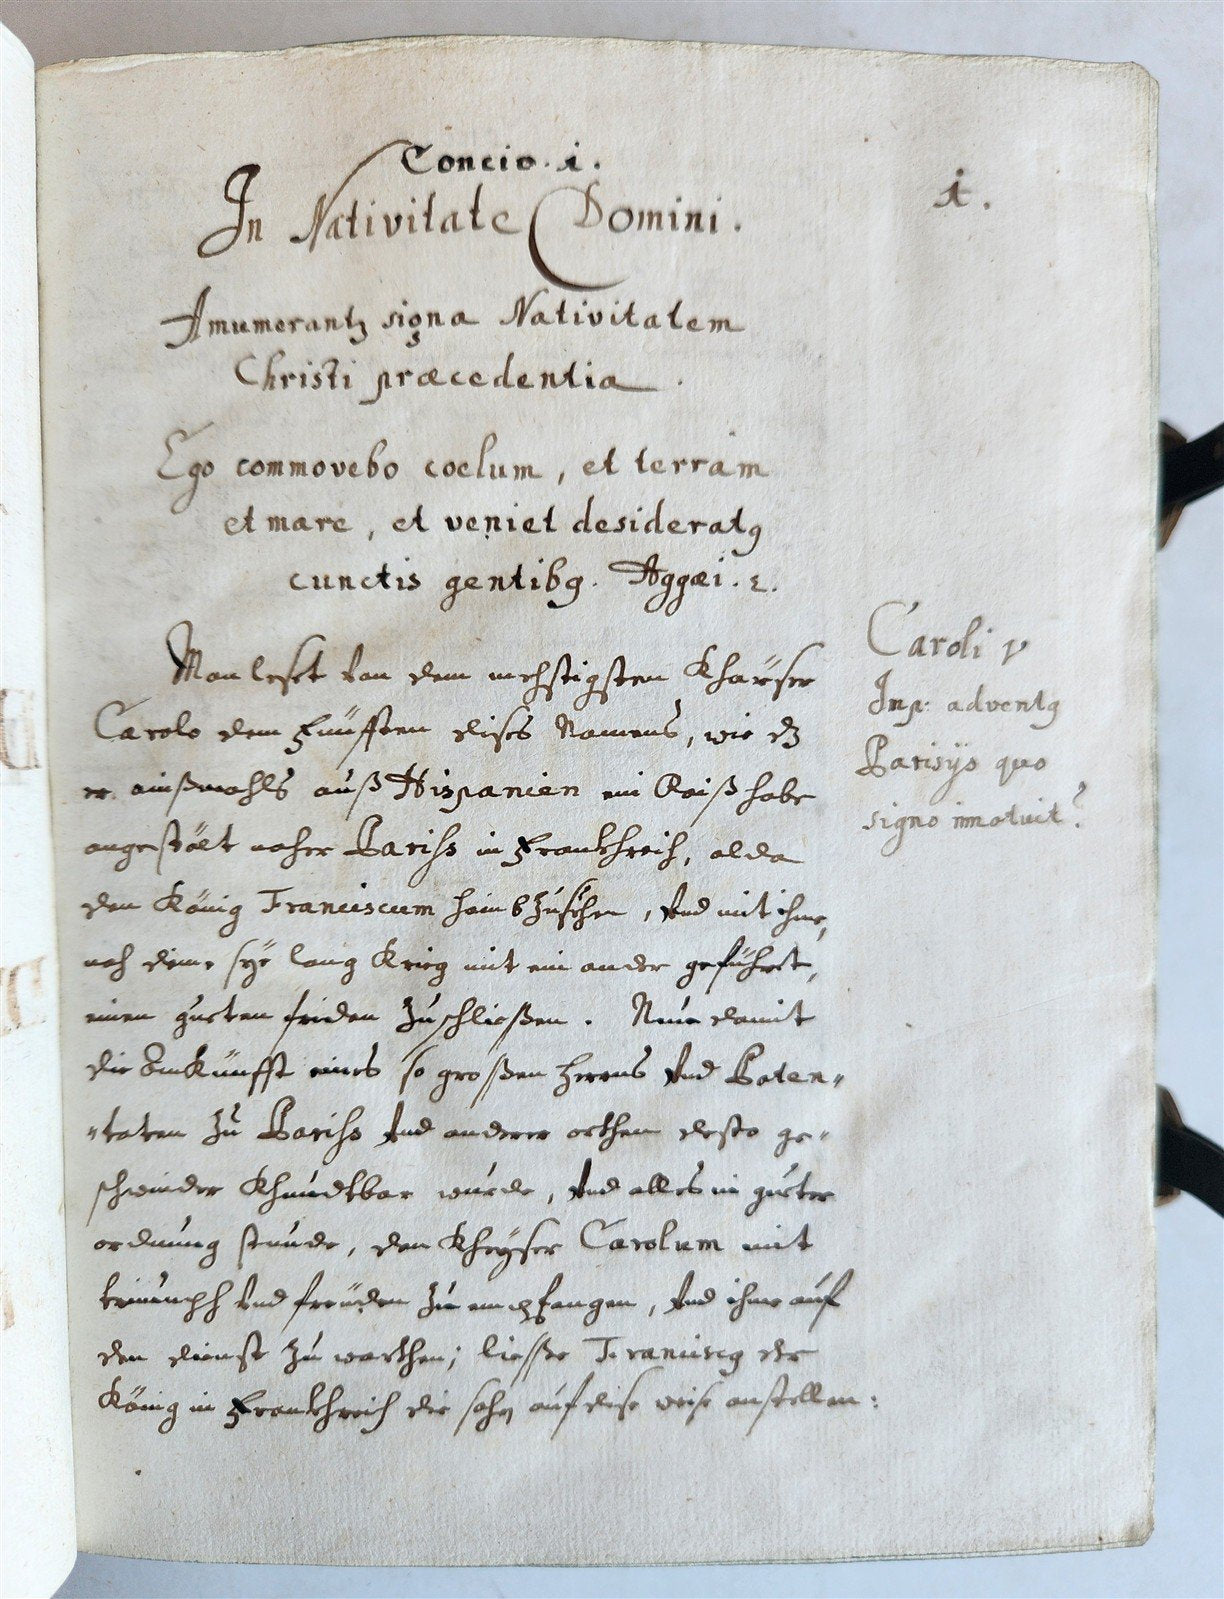 Concio. i.
1.
In Nativitate Domini.
Annumerantz signa Nativitatem
Christi præcedentia.
Ego commovebo coelum, et terram
et mare, et veniet desideratꝰ
cunctis gentibꝰ. Aggæi. 2.
Man leset von dem mehstigsten Khaÿser
Carolo dem Fünfften dises Namens, wie dz
er einßmahls auß Hispanien ein Raiß habe
angestölt naher Pariss in Frankhreich, alda
den König Franciscum haimbzusehen, vnd mit ihme,
nach deme sÿe lang Krieg mit ein ander geführet,
einen gueten friden zu schließen. Nun damit
die Ankunfft eines so großen Herrens vnd Poten-
-taten zu Pariss vnd anderer orthen desto ge-
schwinder Khundtbar wurde, vnd alles in gueter
ordnung stunde, den Kheÿser Carolum mit
triumph vnd freuden zu empfangen, vnd ihme auf
den dienst zu warthen; liesse Franciscꝰ der
König in Frankhreich die sach auf dise weise anstellen:
Caroli V
Imp: adventꝰ
Parisijs quo
signo innotuit?